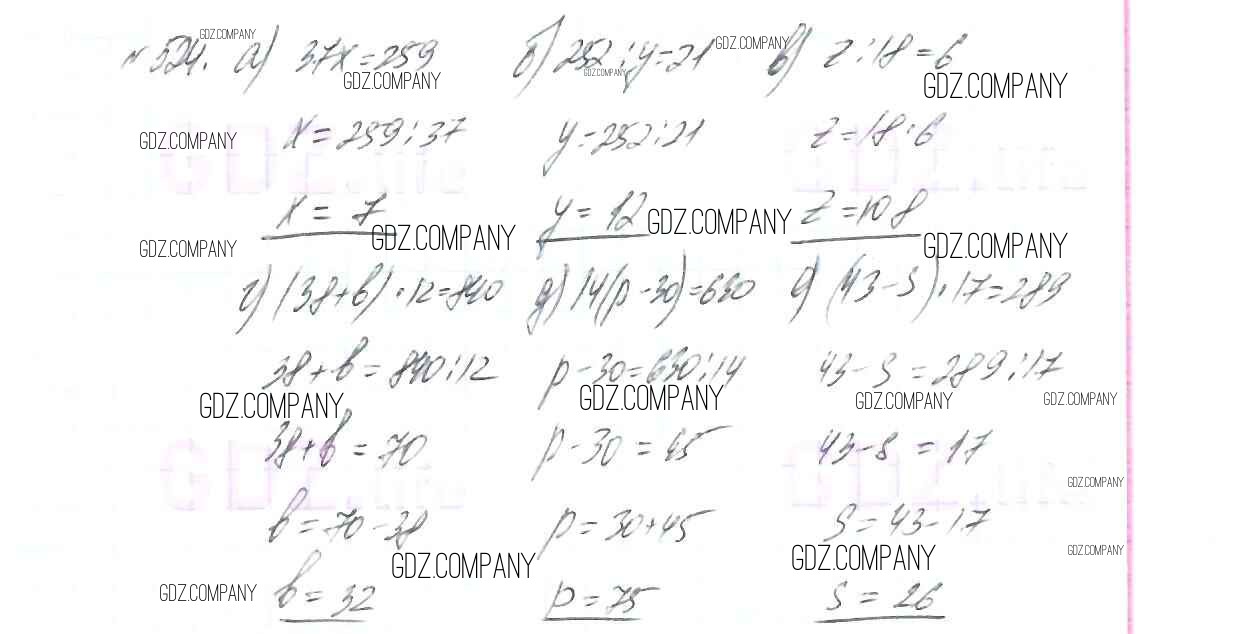 № 524. а) 37x = 259 б) 252 : y = 21 в) z : 18 = 6
GDZ.COMPANY GDZ.COMPANY GDZ.COMPANY GDZ.COMPANY GDZ.COMPANY
x = 259 : 37 y = 252 : 21 z = 18 · 6
GDZ.COMPANY
GDZ.life GDZ.life
x = 7 y = 12 z = 108
GDZ.COMPANY GDZ.COMPANY GDZ.COMPANY GDZ.COMPANY
г) (38 + b) · 12 = 840 д) 14(p - 30) = 630 е) (43 - s) · 17 = 289
38 + b = 840 : 12 p - 30 = 630 : 14 43 - s = 289 : 17
GDZ.COMPANY GDZ.COMPANY GDZ.COMPANY GDZ.COMPANY
38 + b = 70 p - 30 = 45 43 - s = 17
GDZ.life GDZ.life GDZ.COMPANY
b = 70 - 38 p = 30 + 45 s = 43 - 17
GDZ.COMPANY GDZ.COMPANY GDZ.COMPANY
b = 32 p = 75 s = 26
GDZ.COMPANY